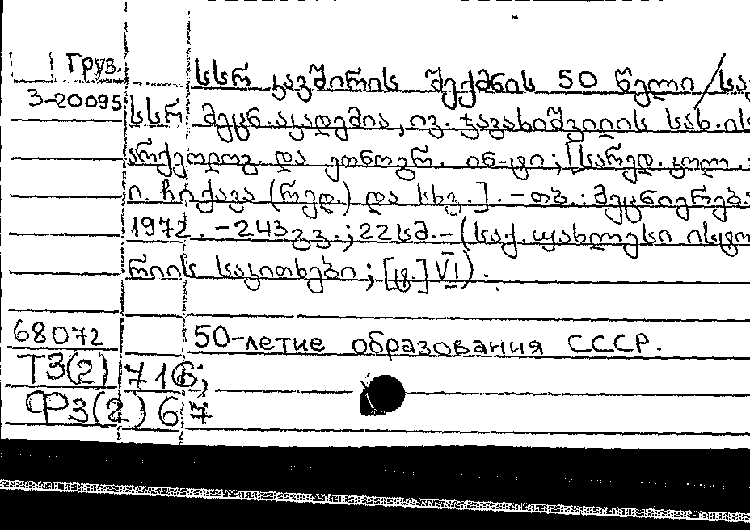 Груз.
სსრ კავშირის შექმნის 50 წელი / სა
3-20095 სსრ მეცნ. აკადემია, ივ. ჯავახიშვილის სახ. ის
არქეოლოგ. და ეთნოგრ. ინ-ტი; [სარედ. კოლ.:
ი. ჩიქავა (რედ.) და სხვ.]. - თბ.: მეცნიერება
1972. - 243 გვ.; 22 სმ. - (საქ. უახლესი ისტო
რიის საკითხები; [ტ.] VI).
68072 50-летие образования СССР.
Т3(2) 716;
Ф3(2) 67